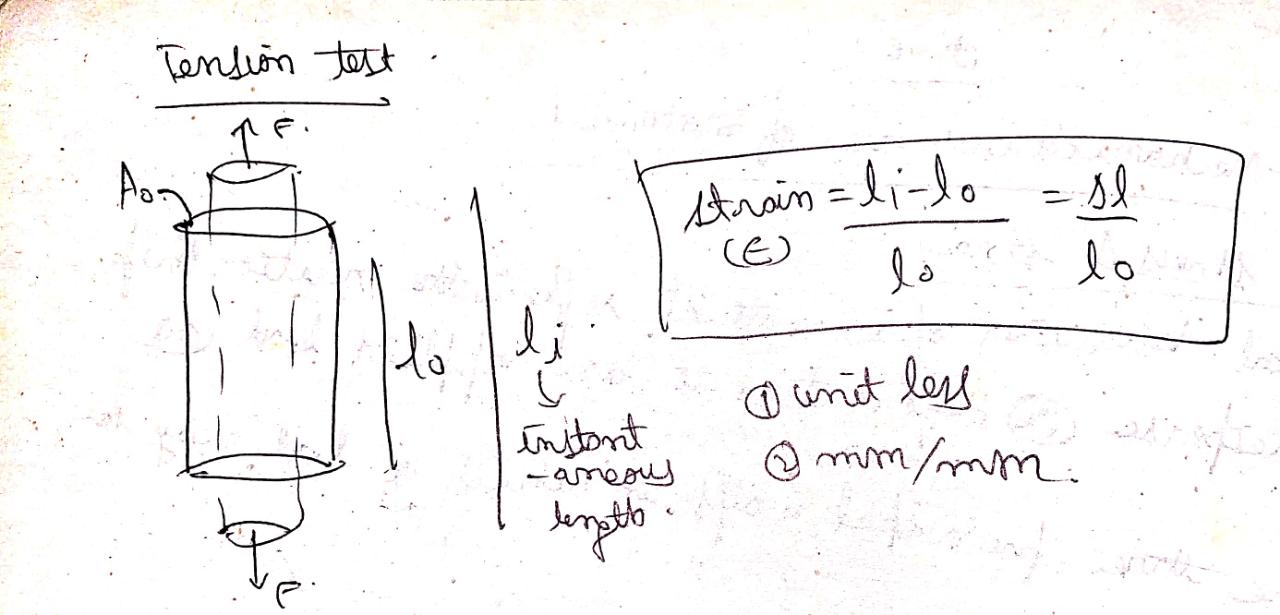 Tension test.
F.
A₀
l₀
lᵢ
instant
-aneous
length.
F.
strain = lᵢ-l₀ / l₀ = Δl / l₀
(ϵ)
① unit less
② mm/mm.